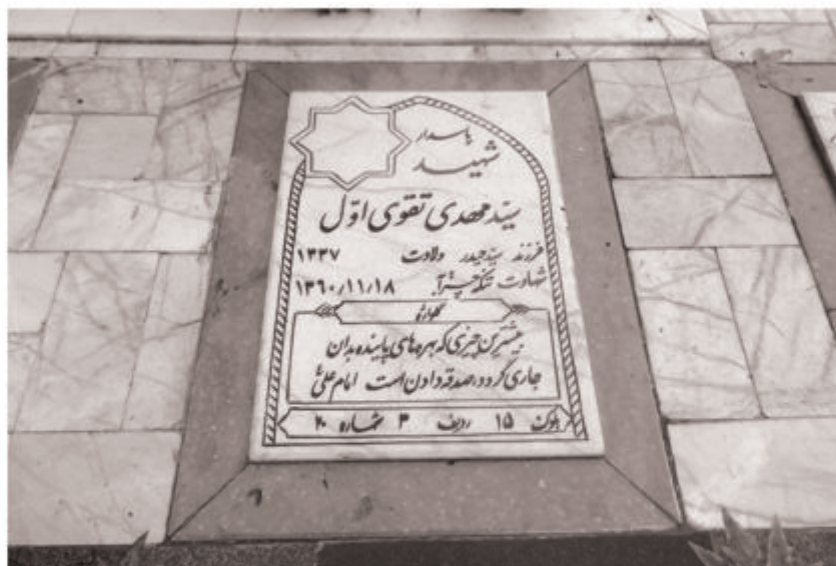 پاسدار
شهید
سید مهدی تقوی اول
فرزند سید حیدر ولادت ۱۳۳۷
شهادت تنگه چزابه ۱۳۶۰/۱۱/۱۸
گلواژه
بیشترین چیزی که بهره‌های پاینده بدان
جاری گردد، صدقه دادن است امام علی ع
بلوک ۱۵ ردیف ۳ شماره ۲۰